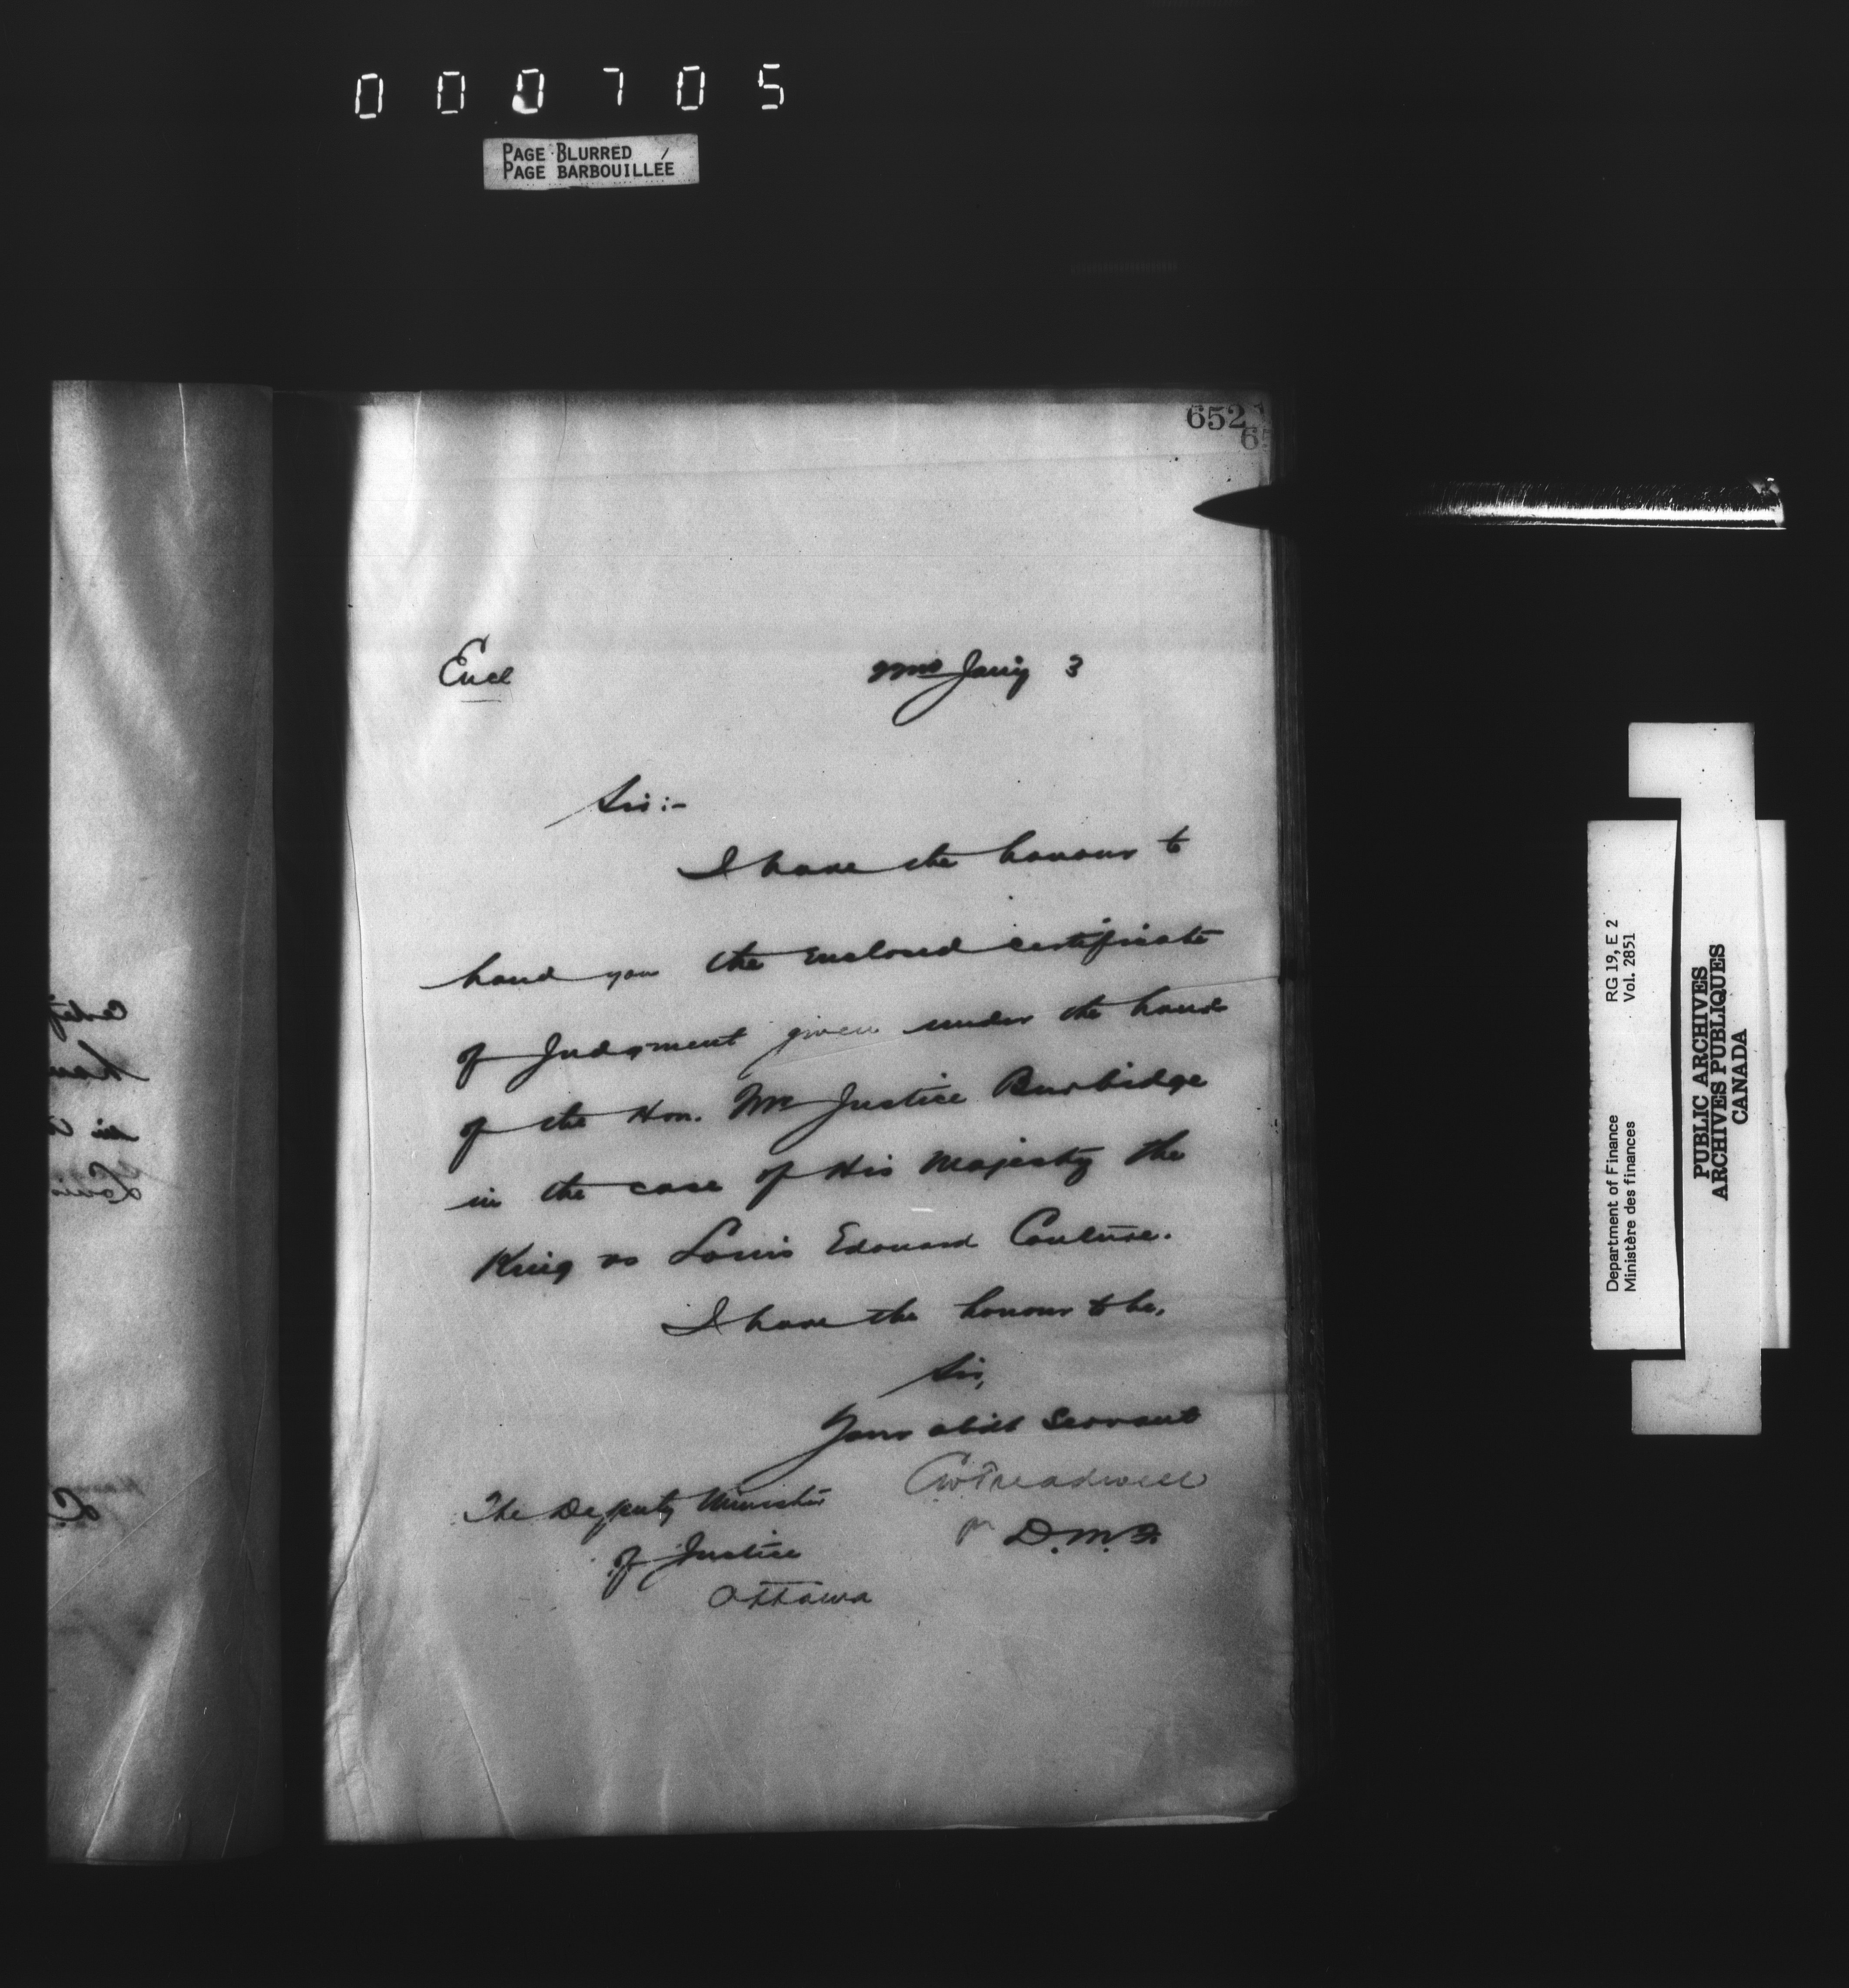 000705
PAGE BLURRED
PAGE BARBOUILLÉE
652
6
Encl
22nd Jany 3
Sir:-
I have the honour to
hand you the enclosed certificate
of Judgment given under the hand
of the Hon. Mr Justice Burbidge
in the case of His Majesty the
King vs Louis Edouard Couture.
I have the honour to be,
Sir,
Your obdt Servant
CW Treadwell
pr D.M.F.
The Deputy Minister
of Justice
Ottawa
Department of Finance RG 19, E 2
Ministère des finances Vol. 2851
PUBLIC ARCHIVES
ARCHIVES PUBLIQUES
CANADA